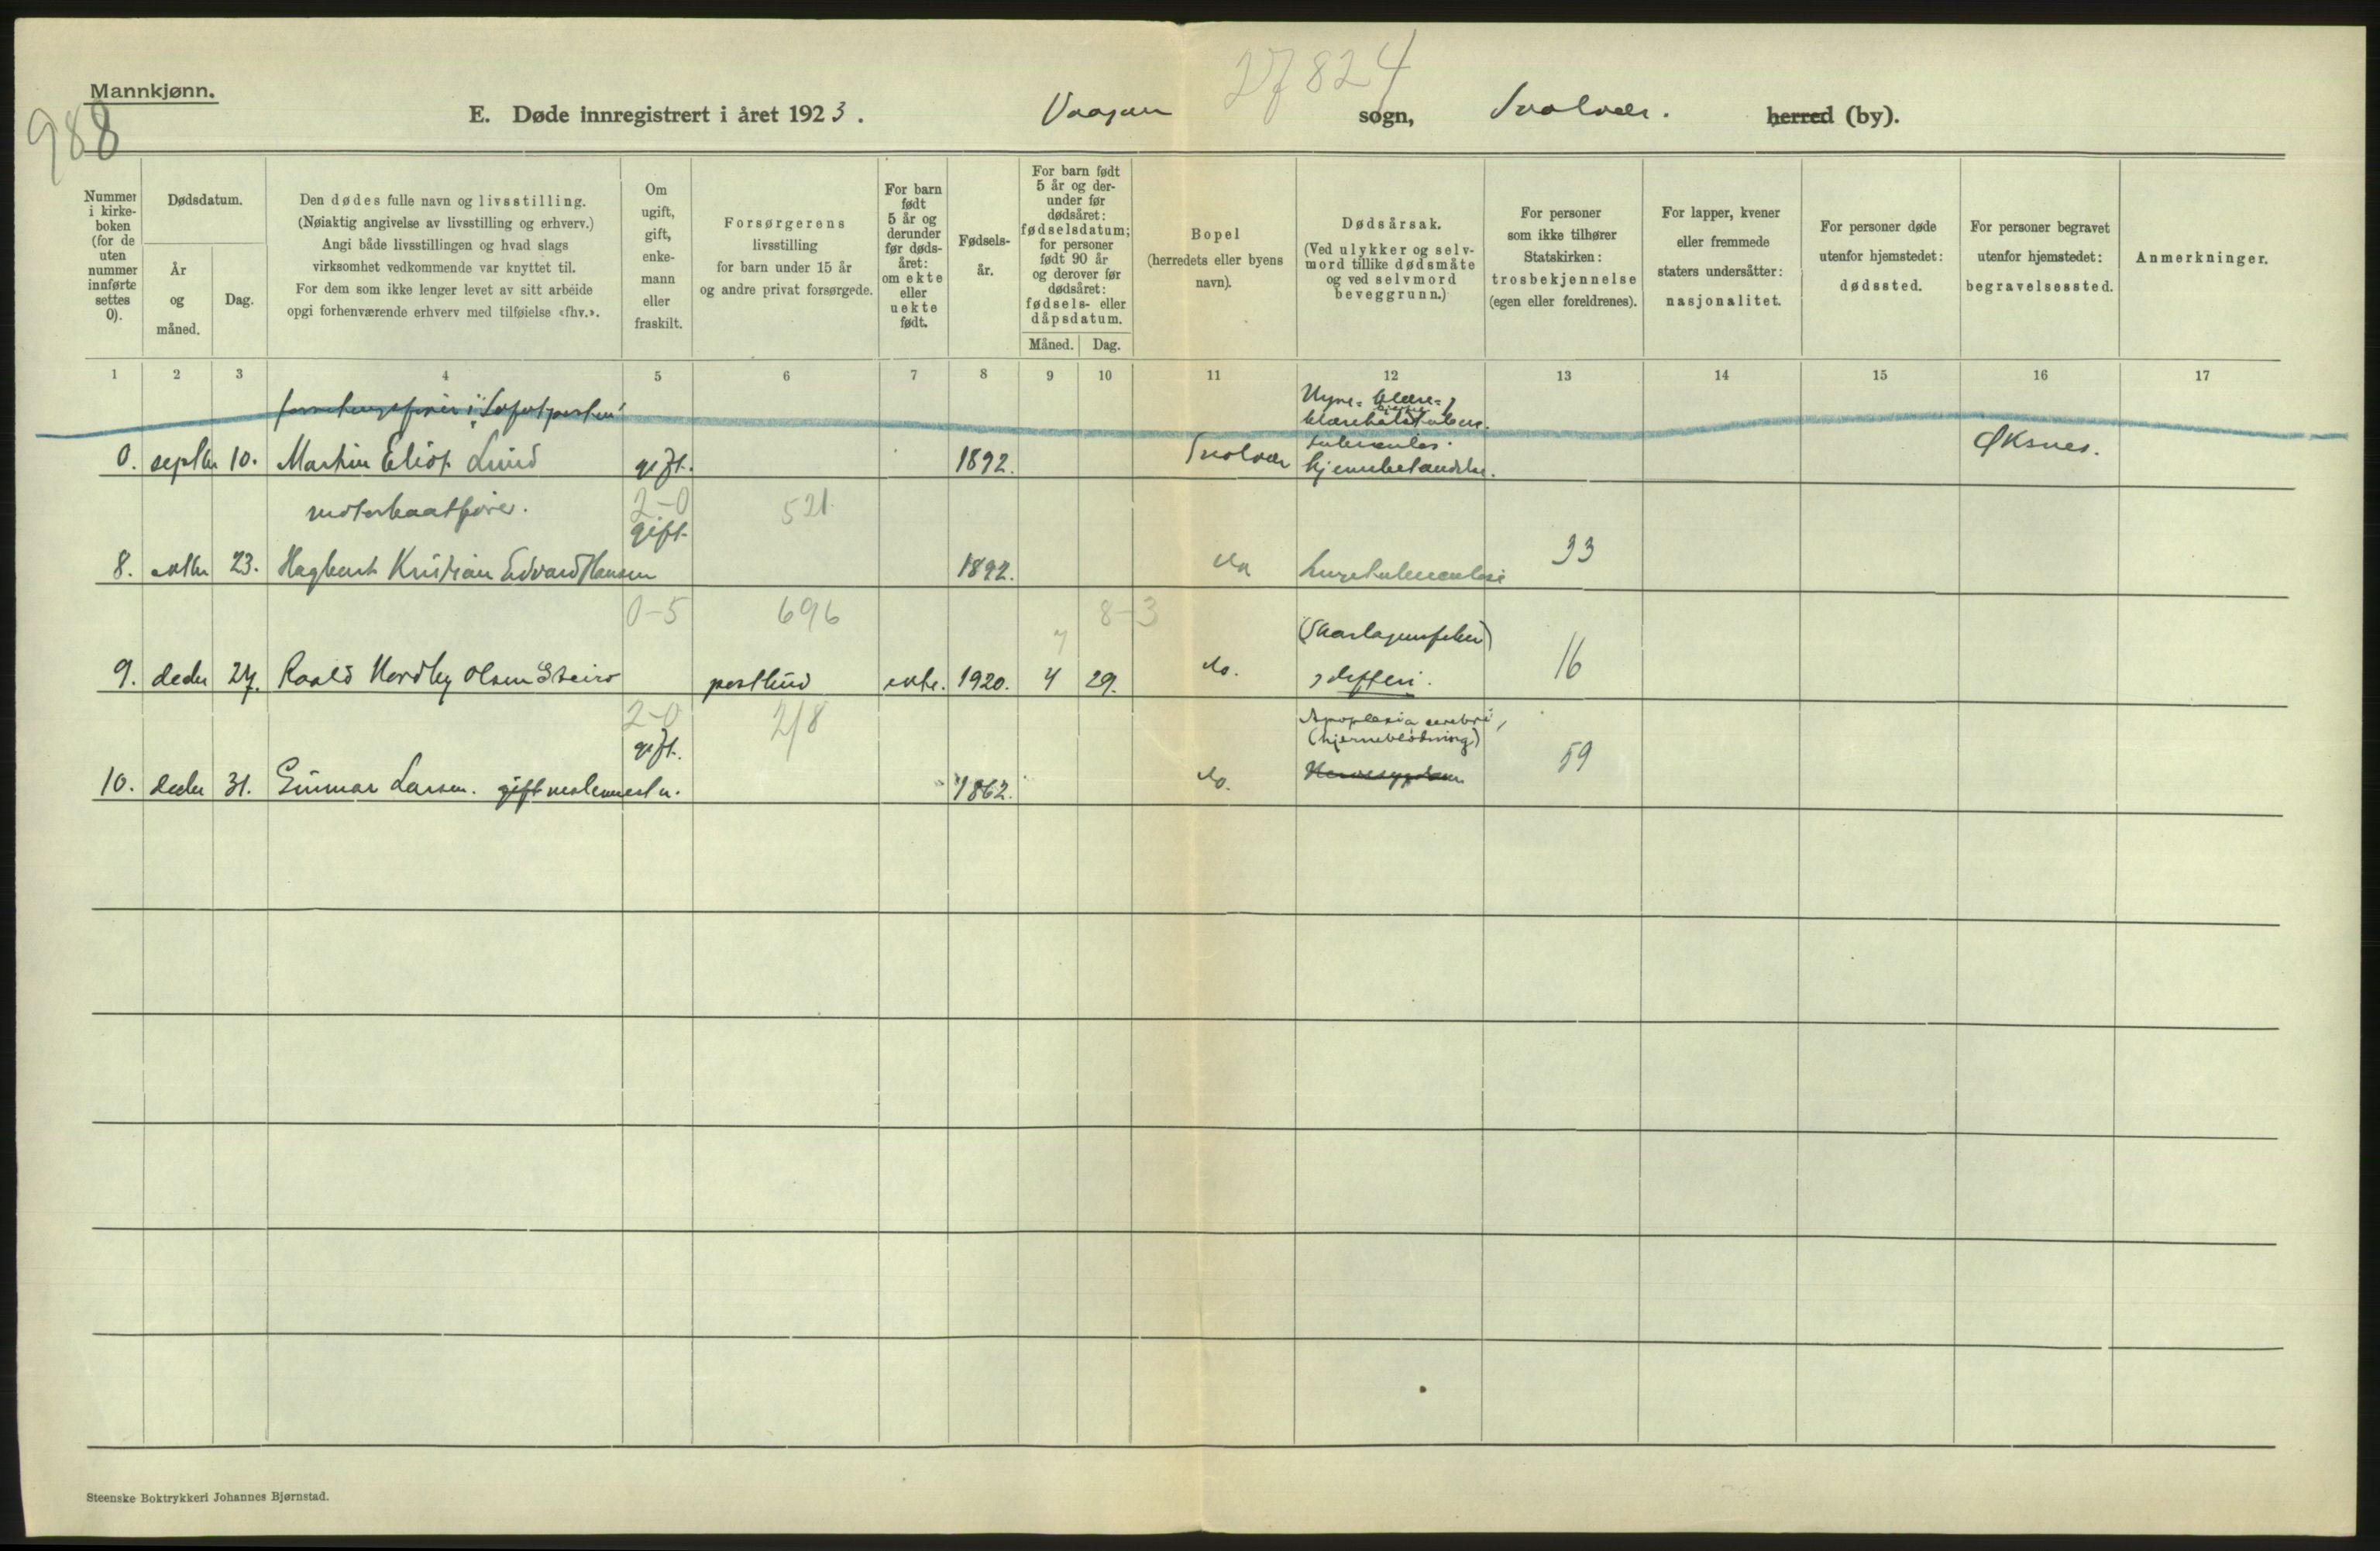 27824
Mannkjønn.
988
E. Døde innregistrert i året 1923. Vaagan sogn, Svolvær. herred (by).
Nummer i kirke- boken (for de uten nummer innførte settes 0).
Dødsdatum.
År og måned.
Dag.
Den dødes fulle navn og livsstilling.
(Nøiaktig angivelse av livsstilling og erhverv.)
Angi både livsstillingen og hvad slags
virksomhet vedkommende var knyttet til.
For dem som ikke lenger levet av sitt arbeide
opgi forhenværende erhverv med tilføielse «fhv.».
Om ugift, gift, enke- mann eller fraskilt.
Forsørgerens
livsstilling
for barn under 15 år
og andre privat forsørgede.
For barn født 5 år og derunder før døds- året: om ekte eller uekte født.
Fødsels- år.
For barn født 5 år og der- under før dødsåret: fødselsdatum; for personer født 90 år og derover før dødsåret: fødsels- eller dåpsdatum.
Måned. Dag.
Bopel
(herredets eller byens
navn).
Dødsårsak.
(Ved ulykker og selv-
mord tillike dødsmåte
og ved selvmord
beveggrunn.)
For personer
som ikke tilhører
Statskirken:
trosbekjennelse
(egen eller foreldrenes).
For lapper, kvener
eller fremmede
staters undersåtter:
nasjonalitet.
For personer døde
utenfor hjemstedet:
dødssted.
For personer begravet
utenfor hjemstedet:
begravelsessted.
Anmerkninger.
1 2 3 4 5 6 7 8 9 10 11 12 13 14 15 16 17
forretningsfører i "Lofotposten"
Nyre- blære-
0. septbr 10. Martin Eliot Lund gift. 1892. Svolvær tuberculos. Øksnes.
hjernebetændelse.
motorbaatfører. 2-0 521
gift.
8. oktbr 23. Hagbart Kristian Edvard Hansen 1892. do lungetuberculose 33
0-5 696 8-3
7 (Skarlagensfeber)
9. decbr 27. Roald Nordby Olsen Steiro postbud ekte. 1920. 4 29. do. difteri. 16
2-0 218 Apoplexia cerebri,
gift. (hjerneblødning)
10. decbr 31. Gunnar Larsen. gift 1862. do. 59
Steenske Boktrykkeri Johannes Bjørnstad.